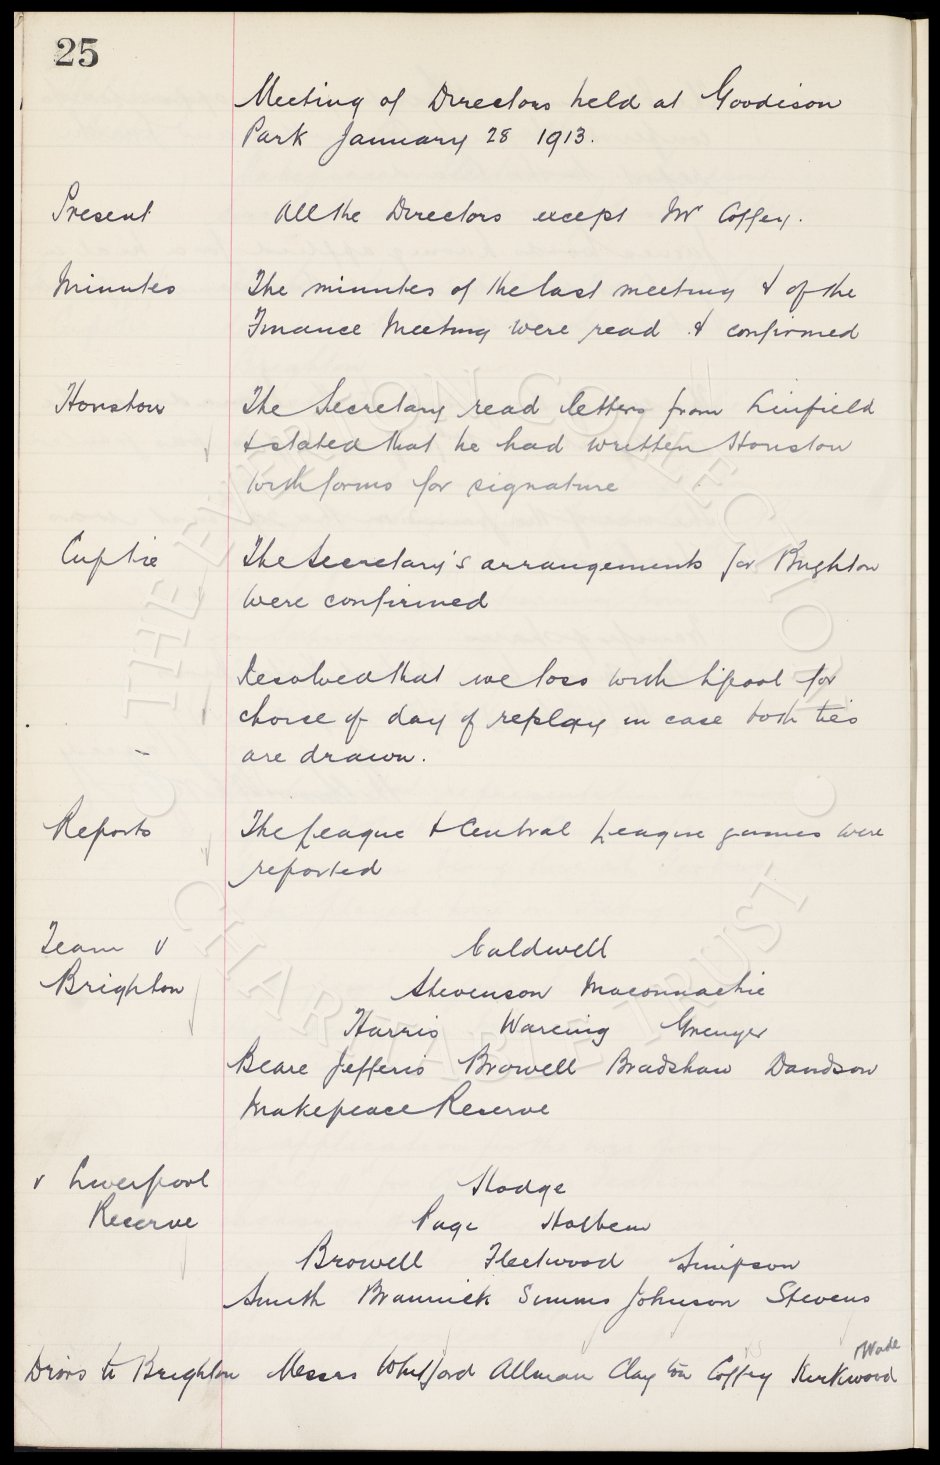 25
Meeting of Directors held at Goodison
Park January 28 1913.
Present All the Directors except Mr Coffey.
Minutes The minutes of the last meeting & of the
Finance Meeting were read & confirmed
Houston The Secretary read letters from Linfield
& stated that he had written Houston
with forms for signature
Cup tie The Secretary's arrangements for Brighton
were confirmed
Resolved that we toss with L'pool for
choise of day of replay in case both ties
are drawn.
Reports The League & Central League games were
reported
Team v Caldwell
Brighton Stevenson Maconnachie
Harris Wareing Grenyer
Beare Jefferis Browell Bradshaw Davidson
Makepeace Reserve
v Liverpool Hodge
Reserve Page Holbem
Browell Fleetwood Simpson
Smith Brannick Simms Johnson Stevens
Wade
Dirors to Brighton Messrs Whitford Allman Clayton Coffey Kirkwood
THE EVERTON COLLECTION
CHARITABLE TRUST